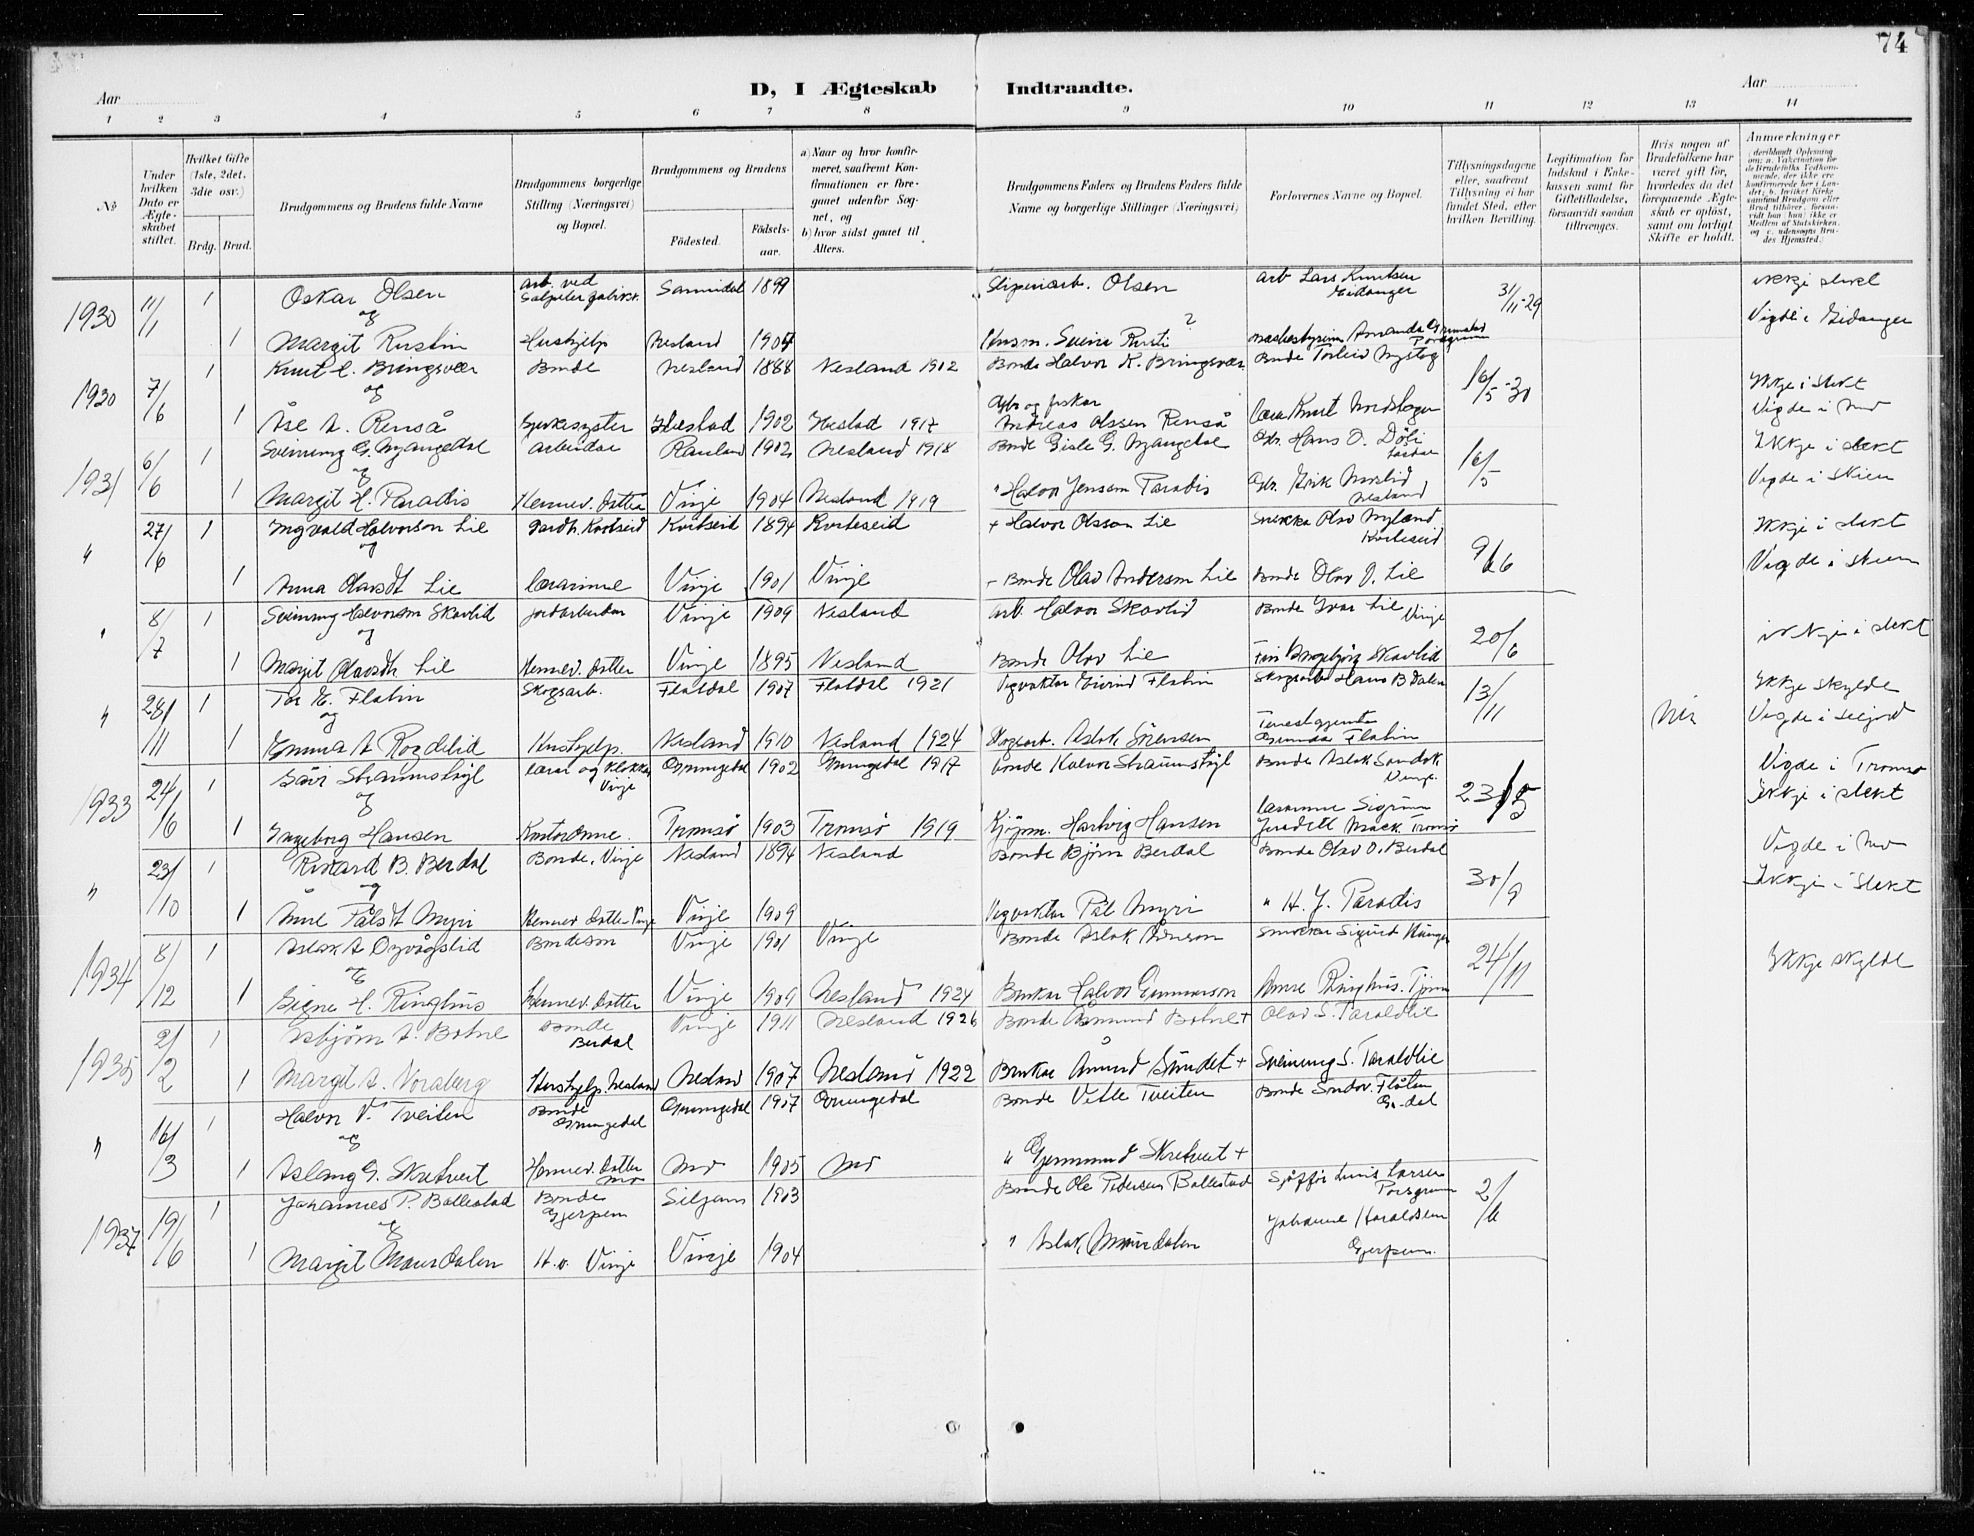 74
D, I Ægteskab Indtraadte.
Aar
Aar
1 2 3 4 5 6 7 8 9 10 11 12 13 14
№
Under hvilken Dato er Ægteskabet stiftet.
Hvilket Gifte (1ste, 2det, 3die osv.)
Brdg. Brud.
Brudgommens og Brudens fulde Navne
Brudgommens borgerlige Stilling (Næringsvei) og Bopæl.
Brudgommens og Brudens
Födested. Födsels-aar.
a) Naar og hvor konfirmeret, saafremt Konfirmationen er foregaaet udenfor Sognet, og
b) hvor sidst gaaet til Alters.
Brudgommens Faders og Brudens Faders fulde Navne og borgerlige Stillinger (Næringsvei)
Forlovernes Navne og Bopæl.
Tillysningsdagene eller, saafremt Tillysning ei har fundet Sted, efter hvilken Bevilling.
Legitimation for Indskud i Enkekassen samt for Giftetilladelse, forsaavidt saadan tiltrænges.
Hvis nogen af Brudefolkene har været gift før, hvorledes da det foregaaende Ægteskab er oplöst, samt om lovligt Skifte er holdt.
Anmærkninger
1930 11/1 1 Oskar Olsen arb. ved Salpeter fabrikk. Sannidal 1899 Sliperiarb. Olsen arb Lars Knutsen Eidanger 31/11-29 ikkje i slekt
og
1 Margit Rustin Hushjelp Nesland 1904 Husm. Svein Rusti ? Amanda Grimstad Porsgrunn Vigde i Eidanger
1930 7/6 1 Knut H. Bringsvær Bonde Nesland 1888 Nesland 1902 Bonde Halvor K. Bringsvær Bonde Torleiv Nystog 16/5-30 Ikkje i slekt
og
1 Åse A. Renså Sjukesyster Hestad 1902 Hestad 1917 Gbr og fiskar Andreas Olssen Renså Knut Nordskog Vigde i Mo
1931 6/6 1 Sveinung G. Mjaugedal Arbeidar Rauland 1902 Nesland 1918 Bonde Gisle G. Mjaugedal Gbr. Hans O. Döli 16/5 Ikkje i slekt
og
1 Margit H. Paradis Hennev. Dotter Vinje 1904 Nesland 1919 " Halvor Jensen Paradis Gbr. Eirik Nesland Vigde i Skien
" 27/6 1 Ingvald Halvorson Lie Gardbr. Kvitseid Kvitseid 1894 Kviteseid + Halvor Olsson Lie Snikkar Olav Nyland, Kviteseid 9/6 Ikkje i slekt
og
1 Anna Olavsdt Lie lærarinne Vinje 1901 Vinje – Bonde Olav Anderson Lie Bonde Olav O. Lie Vigde i Skien
" 8/7 1 Sveinung Halvorson Skavlid jordarbeidar Vinje 1909 Nesland Arb. Halvor Skavlid Bonde Ivar Lie Vinje 20/6 ikkje i slekt
og
1 Margit Olavsdtr Lie Hennev. Dotter Vinje 1895 Nesland Bonde Olav Lie Frk Ingebjörg Skavlid
" 28/11 1 Tor E. Flatin Skogsarb. Flatdal 1907 Flatdal 1921 Vegvaktar Eivind Flatin Skogsarb Hans B Dalen 13/11 Nei Ikkje skylde
og
1 Emma A Rogdelid Hushjelp. Nesland 1910 Nesland 1924 Skogsarb. Aslak Sörensen Tenestgjenta Gunda Flatin Vigde i Seljord
1933 24/6 1 Straumstöyl lærar og klokkar Vinje Grungedal 1902 Grungedal 1917 Bonde Halvor Straumstöyl Bonde Aslak Sandok Vinje. 23/5 Vigde i Tromsö
og Ikkje i slekt
1 Ingeborg Hansen Kontordame. Tromsö 1903 Tromsö 1919 Kjöpm. Hartvig Hansen Lærarinne Sigrun Mack. Tromsö
" 23/10 1 Rikard B. Berdal Bonde, Vinje Nesland 1894 Nesland Bonde Björn Berdal Bonde Olav O. Berdal 30/9 Vigde i Mo
og Ikkje i slekt
1 Anne Pålsdt Myri Hennev Dotter Vinje Vinje 1909 Vegvaktar Pål Myri " H. J. Paradis
1934 8/12 1 Aslak A Dyvågslid Bondeson Vinje 1901 Vinje Bonde Aslak Sigurd 24/11 Ikkje skylde
og
1 Signe H. Ringhus Hennev. Dotter Vinje 1909 Nesland 1924 Brukar Halvor Gunnarson Anne Ringhus.
1935 2/2 1 Asbjørn A. Botne Bonde Berdal Vinje 1911 Nesland 1926 Bonde Åsmund Botne + Olav S. Taraldlie
1 Margit A. Voraberg Hushjelp. Nesland Nesland 1907 Nesland 1922 Brukar Åmund Sundet + Sveinung S. Taraldlie
" 16/3 1 Halvor V. Tveiten Bonde Grungedal Grungedal 1907 Grungedal Bonde Vetle Tveiten Bonde Sondov. Flåten Gr.-dal
og
1 Aslaug G. Skretveit Hennev. Dotter Mo Mo 1905 Mo " Gjermund Skretveit +
1937 19/6 1 Johannes P. Ballestad Bonde Gjerpen Siljan 1903 Bonde Ole Pedersen Ballestad Sjåfför Larsen Porsgrunn 2/6
og
1 Margit Maurdalen H.v. Vinje Vinje 1904 " Aslak Maurdalen Johanne Haraldsen Gjerpen.